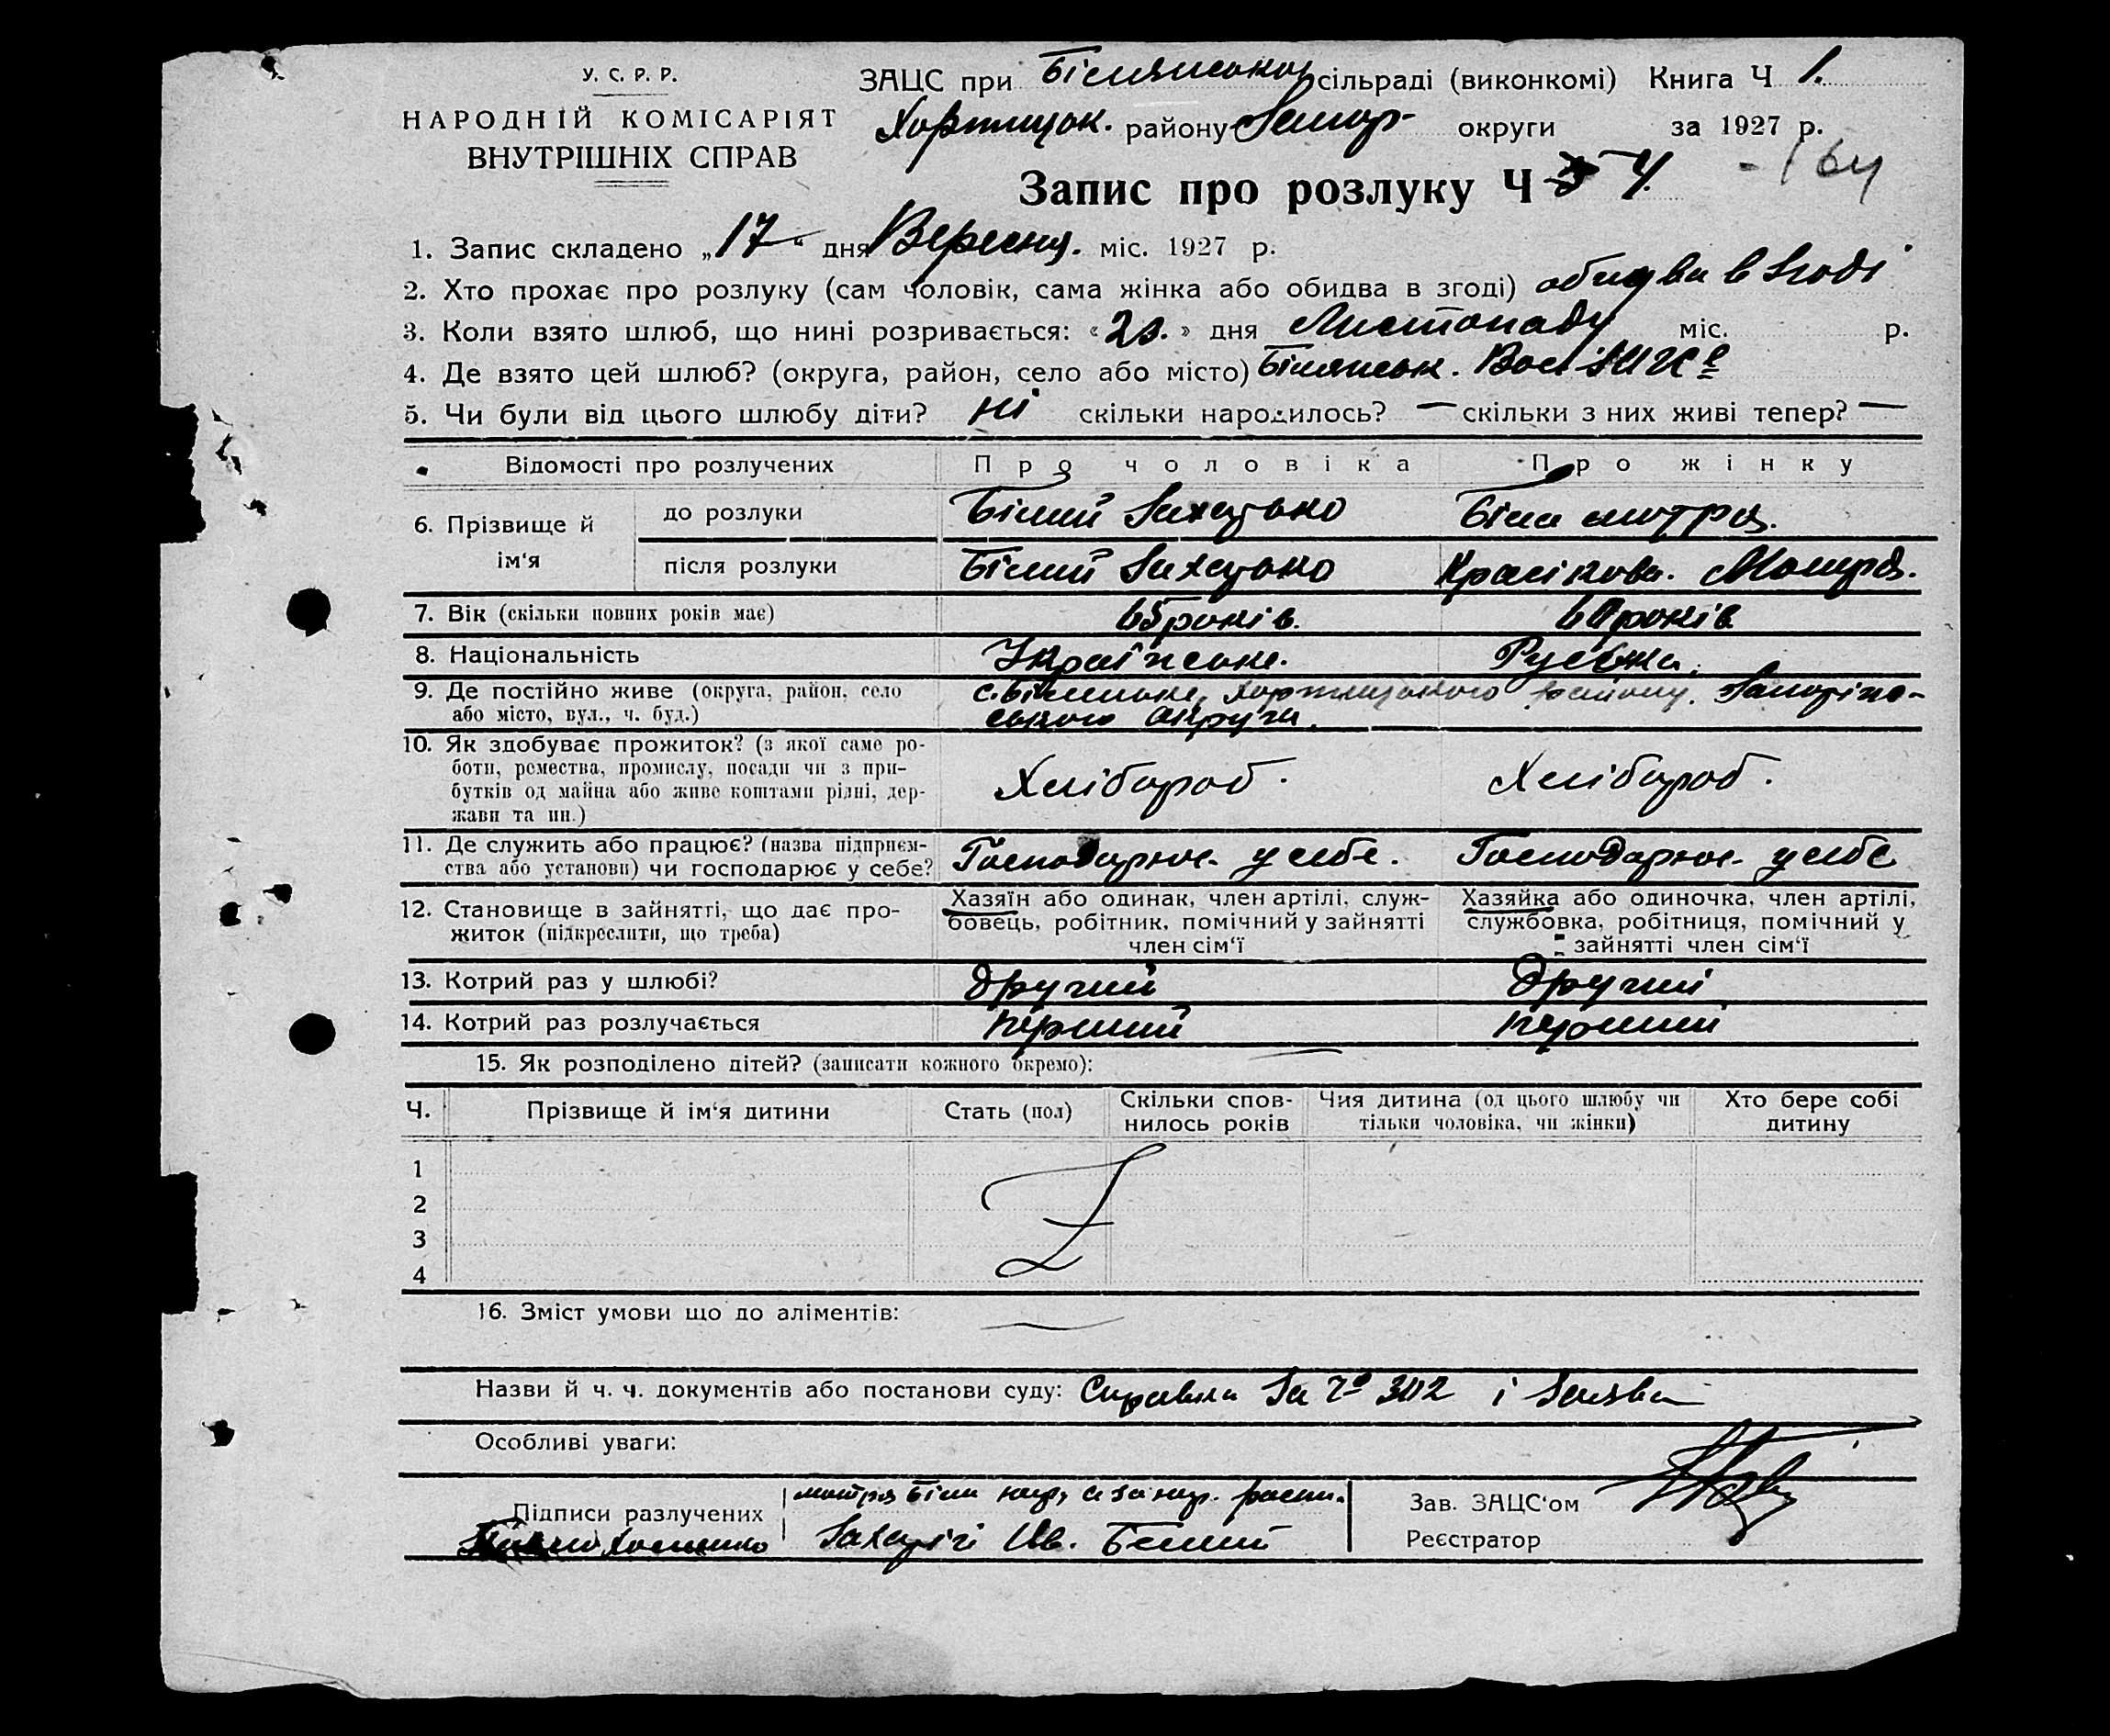 У. С. Р. Р.
НАРОДНІЙ КОМІСАРІЯТ
ВНУТРІШНІХ СПРАВ
ЗАЦС при сільраді (виконкомі) Книга Ч 1.
Хортицьк. району Запор- округи за 1927 р.
Запис про розлуку Ч 4.
1. Запис складено „17“ дня Вересня. міс. 1927 р.
2. Хто прохає про розлуку (сам чоловік, сама жінка або обидва в згоді) обидва в згоді
3. Коли взято шлюб, що нині розривається: « » дня Листопаду міс. р.
4. Де взято цей шлюб? (округа, район, село або місто)
5. Чи були від цього шлюбу діти? ні скільки народилось? — скільки з них живі тепер? —
Відомості про розлучених Про чоловіка Про жінку
6. Прізвище й ім‘я
до розлуки Білий Захарько Біла Мотря.
після розлуки Білий Захарько Красікова. Мотря.
7. Вік (скільки повних років має) 65 років. 60 років
8. Національність Українське. Руська.
9. Де постійно живе (округа, район, село або місто, вул., ч. буд.) с. Хортицького району. Запорізь-
ського округи.
10. Як здобуває прожиток? (з якої саме ро-
боти, ремества, промислу, посади чи з при-
бутків од майна або живе коштами рідні, дер-
жави та ин.) Хлібороб. Хлібороб.
11. Де служить або працює? (назва підприєм-
ства або установи) чи господарює у себе? Господарює у себе. Господарює у себе
12. Становище в зайнятті, що дає про-
житок (підкреслити, що треба)
Хазяїн або одинак, член артілі, служ-
бовець, робітник, помічний у зайнятті
член сім‘ї
Хазяйка або одиночка, член артілі,
службовка, робітниця, помічний у
зайнятті член сім‘ї
13. Котрий раз у шлюбі? другий другий
14. Котрий раз розлучається перший перший
15. Як розподілено дітей? (записати кожного окремо): —
Ч. Прізвище й ім‘я дитини Стать (пол) Скільки спов-
нилось років Чия дитина (од цього шлюбу чи
тільки чоловіка, чи жінки) Хто бере собі
дитину
1
2
3
4
16. Зміст умови що до аліментів: —
Назви й ч. ч. документів або постанови суду: Справка за № 302 і Заява
Особливі уваги:
Підписи разлучених Мотря Біла
Захарій Ів. Белий
Зав. ЗАЦС‘ом
Реєстратор